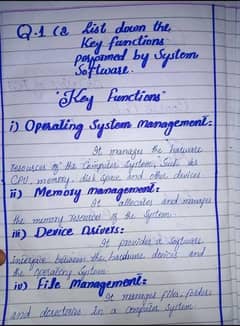 Q.1 (a List down the
Key functions
performed by System
Software.
"Key Functions"
i) Operating System Management:
It manages the hardware
resources of the Computer System, Such as
CPU, memory, disk space and other devices
ii) Memory Management:
It allocates and manages
the memory resources of the System.
iii) Device Drivers:
It provides a Software
interface between the hardware devices and
the Operating System.
iv) File Management:
It manages files, folders
and directories in a computer system.